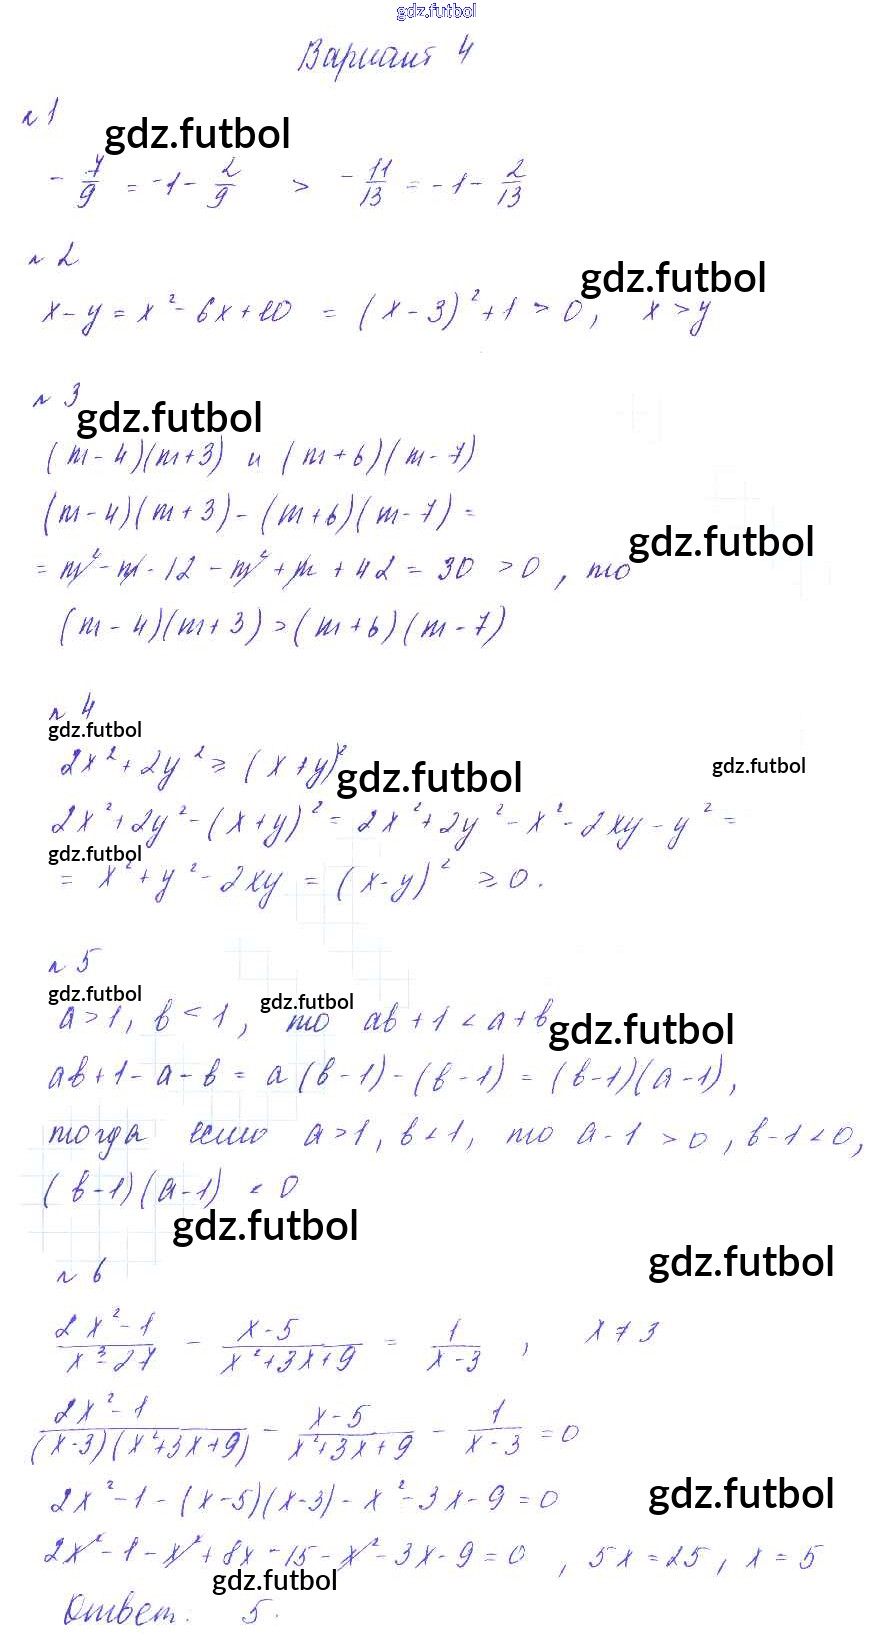 gdz.futbol
Вариант 4
№ 1
gdz.futbol
- 7/9 = -1 - 2/9 > - 11/13 = -1 - 2/13
№ 2
gdz.futbol
x - y = x² - 6x + 10 = (x - 3)² + 1 > 0, x > y
№ 3
gdz.futbol
(m - 4)(m + 3) и (m + 6)(m - 7)
(m - 4)(m + 3) - (m + 6)(m - 7) =
gdz.futbol
= m² - m - 12 - m² + m + 42 = 30 > 0, то
(m - 4)(m + 3) > (m + 6)(m - 7)
№ 4
gdz.futbol
2x² + 2y² ⩾ (x + y)²
gdz.futbol
gdz.futbol
2x² + 2y² - (x + y)² = 2x² + 2y² - x² - 2xy - y² =
gdz.futbol
= x² + y² - 2xy = (x - y)² ⩾ 0.
№ 5
gdz.futbol
gdz.futbol
a > 1, b < 1, то ab + 1 < a + b
gdz.futbol
ab + 1 - a - b = a(b - 1) - (b - 1) = (b - 1)(a - 1),
тогда если a > 1, b < 1, то a - 1 > 0, b - 1 < 0,
(b - 1)(a - 1) < 0
gdz.futbol
gdz.futbol
№ 6
(2x² - 1)/(x³ - 27) - (x - 5)/(x² + 3x + 9) = 1/(x - 3), x ≠ 3
(2x² - 1)/((x - 3)(x² + 3x + 9)) - (x - 5)/(x² + 3x + 9) - 1/(x - 3) = 0
2x² - 1 - (x - 5)(x - 3) - x² - 3x - 9 = 0
gdz.futbol
2x² - 1 - x² + 8x - 15 - x² - 3x - 9 = 0, 5x = 25, x = 5
gdz.futbol
Ответ: 5.